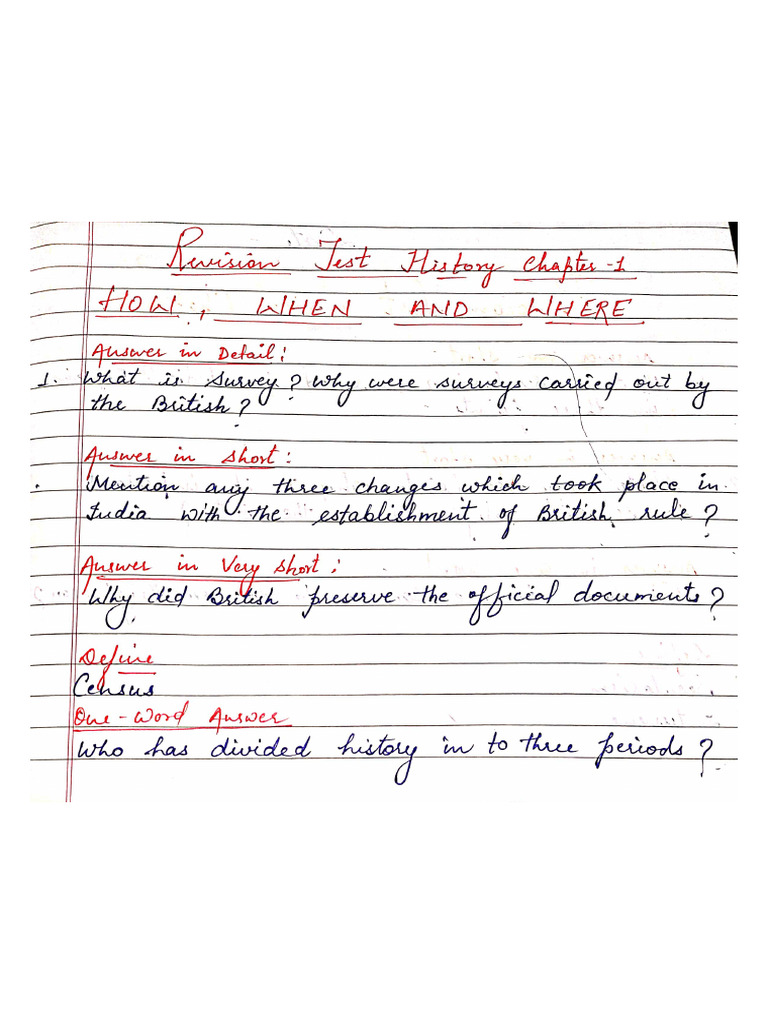 Revision Test History Chapter-1
HOW, WHEN AND WHERE
Answer in Detail:
1. What is survey? Why were surveys carried out by
the British?
Answer in short:
Mention any three changes which took place in
India with the establishment of British rule?
Answer in Very short:
Why did British preserve the official documents?
Define
Census
One-Word Answer
Who has divided history in to three periods?